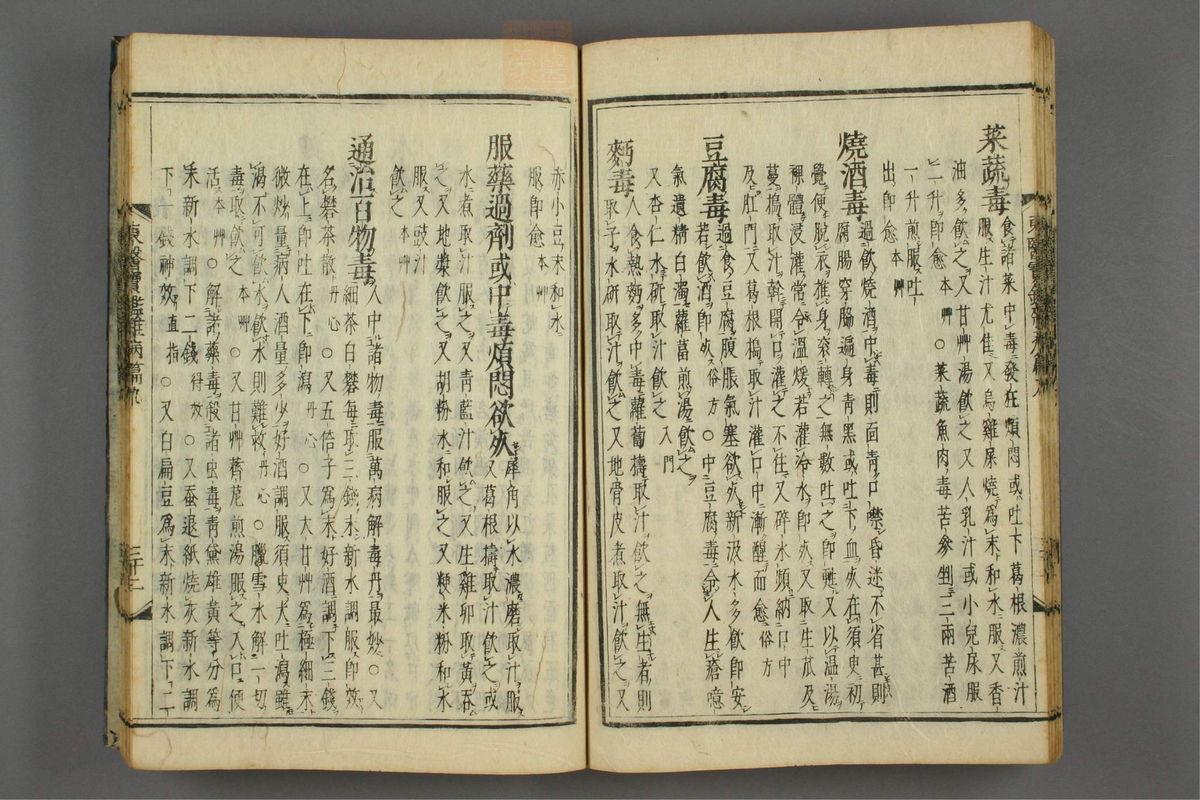 菜蔬毒 食諸菜中毒發在煩悶或吐下葛根濃煎汁
服生汁尤佳又烏雞屎燒爲末和水服又香
油多飲之又甘艸湯飲之又人乳汁或小兒尿服
二升即愈 本艸 ○菜蔬魚肉毒苦參剉二兩苦酒
一升煎服吐
出即愈 本艸
燒酒毒 過飲燒酒中毒則面青口噤昏迷不省甚則
腐腸穿脇遍身青黑或吐下血死在須臾初
覺便脫衣推身滾轉之無數吐之即甦又以溫湯
裸體浸灌常令溫煖若灌冷水即死又取生苽及
蔓搗取汁幹開口灌之不住又碎氷頻納口中
及肛門又葛根搗取汁灌口中漸醒而愈 俗方
豆腐毒 過食豆腐腹脹氣塞欲死新汲水多飲即安
若飲酒即死 俗方 ○中豆腐毒令人生瘡噫
氣遺精白濁蘿葍煎湯飲之
又杏仁水研取汁飲之 入門
麪毒 人食熱麪多中毒蘿蔔擣取汁飲之無生者則
取子水研取汁飲之又地骨皮煮取汁飲之又
赤小豆末和水
服即愈 本艸
服藥過劑或中毒煩悶欲死 犀角以水濃磨取汁服又葛根擣取汁飲之或
水煮取汁服之又靑藍汁飲之又生雞卵取黃吞
之又地漿飲之又胡粉水和服之又粳米粉和水
服又豉汁
飲之 本艸
通治百物毒 人中諸物毒服萬病解毒丹最妙○又
名礬茶散 丹心 細茶白礬每取三錢末新水調服即效
○又五倍子爲末好酒調下三錢
在上即吐在下即瀉 丹心 ○又大甘艸爲極細末
微炒量病人酒量多少好酒調服須臾大吐瀉雖
渴不可飲水飲水則難救 丹心 ○臘雪水解一切
毒取飲之 本艸 ○又甘艸薺苨煎湯服之入口便
活 本艸 ○解諸藥毒殺諸虫毒靑黛雄黃等分爲
末新水調下二錢 得效 ○又蚕退紙燒灰新水調
下一錢神效 直指 ○又白扁豆爲末新水調下二
東醫寶鑑雜病篇九
三十二